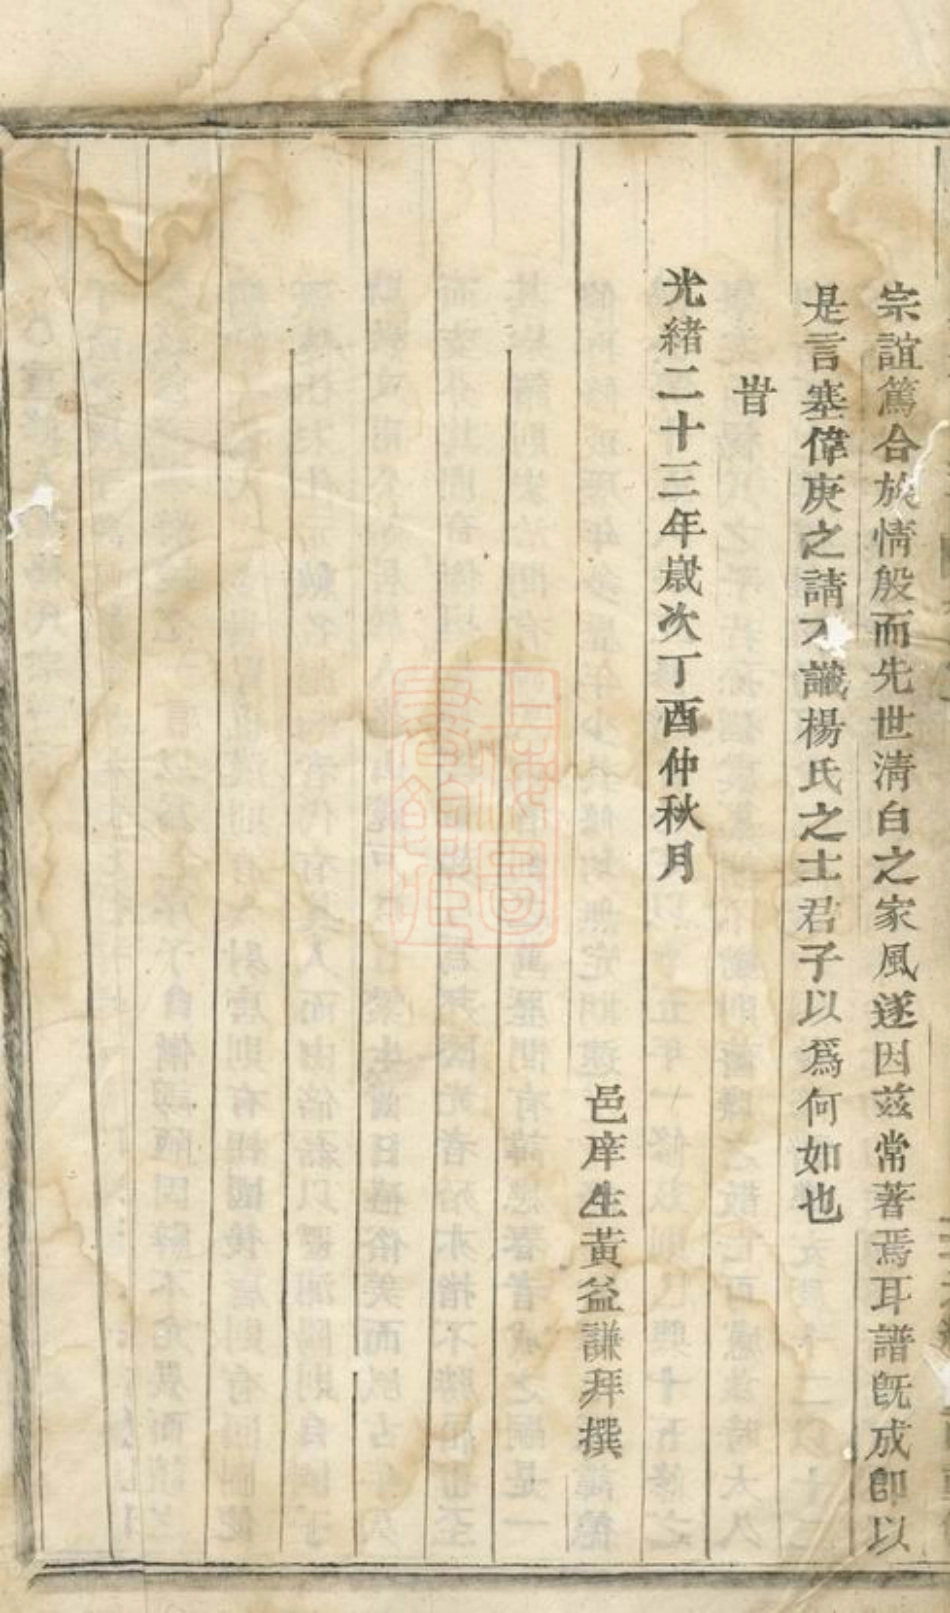 宗誼篤合族情般而先世清白之家風遂因茲常著焉耳譜旣成卽以
是言塞偉庚之請不讖楊氏之士君子以爲何如也
旹
光緒二十三年嵗次丁酉仲秋月
邑庠生黃益謙拜撰